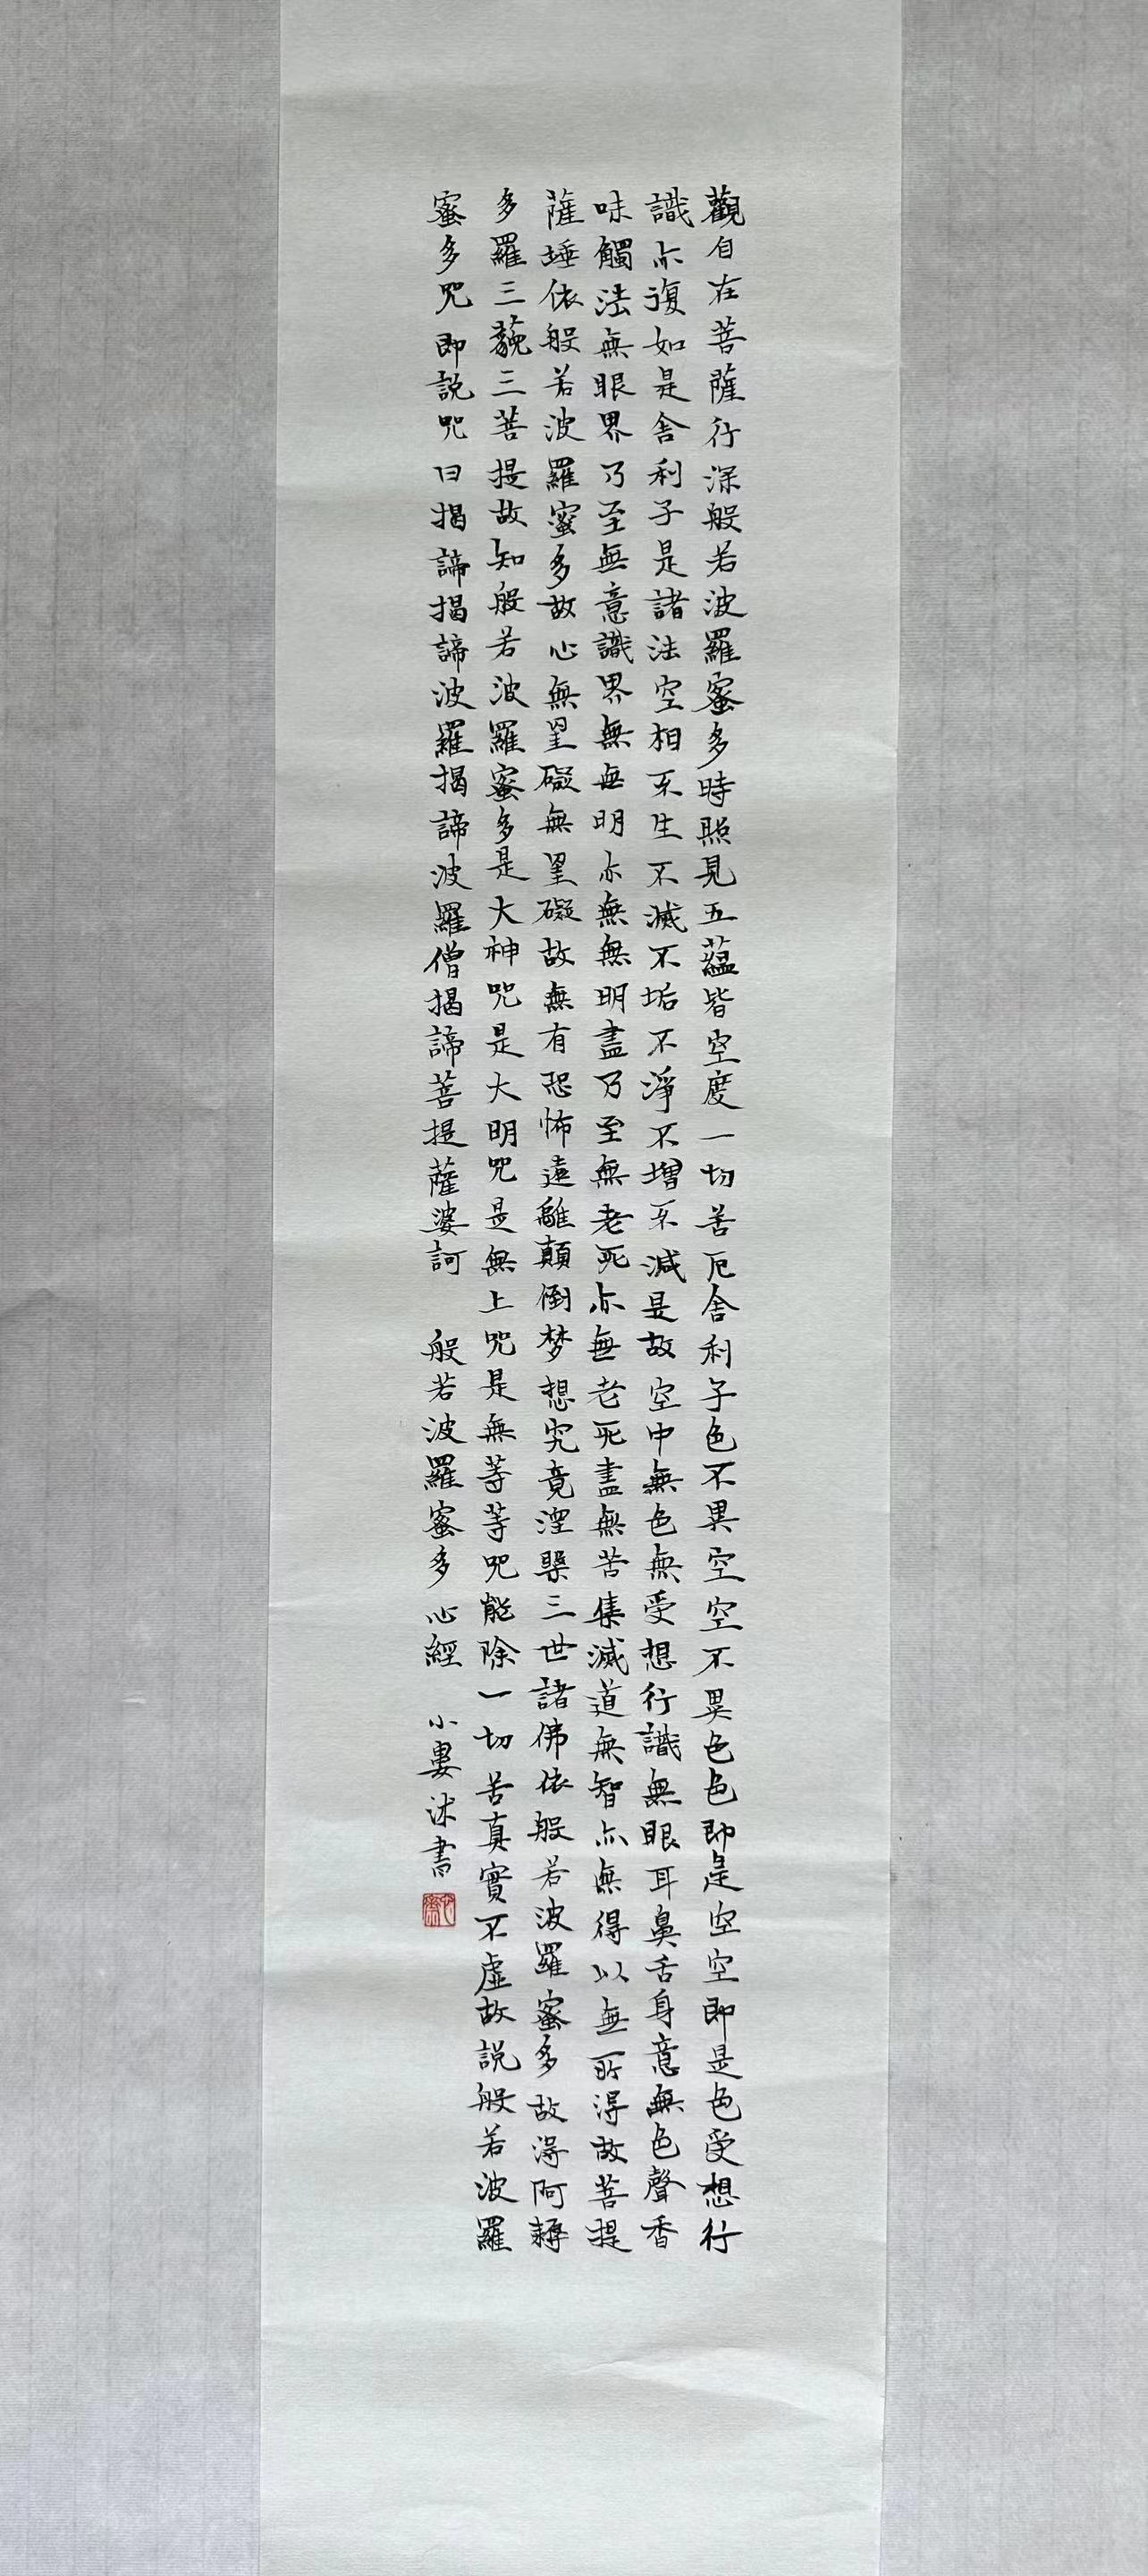 觀自在菩薩行深般若波羅蜜多時照見五蘊皆空度一切苦厄舍利子色不異空空不異色色即是空空即是色受想行
識亦復如是舍利子是諸法空相不生不滅不垢不淨不增不減是故空中無色無受想行識無眼耳鼻舌身意無色聲香
味觸法無眼界乃至無意識界無無明亦無無明盡乃至無老死亦無老死盡無苦集滅道無智亦無得以無所得故菩提
薩埵依般若波羅蜜多故心無罣礙無罣礙故無有恐怖遠離顛倒梦想究竟涅槃三世諸佛依般若波羅蜜多故得阿耨
多羅三藐三菩提故知般若波羅蜜多是大神咒是大明咒是無上咒是無等等咒能除一切苦真實不虛故說般若波羅
蜜多咒即說咒曰揭諦揭諦波羅揭諦波羅僧揭諦菩提薩婆訶 般若波羅蜜多心經 小婁沐書